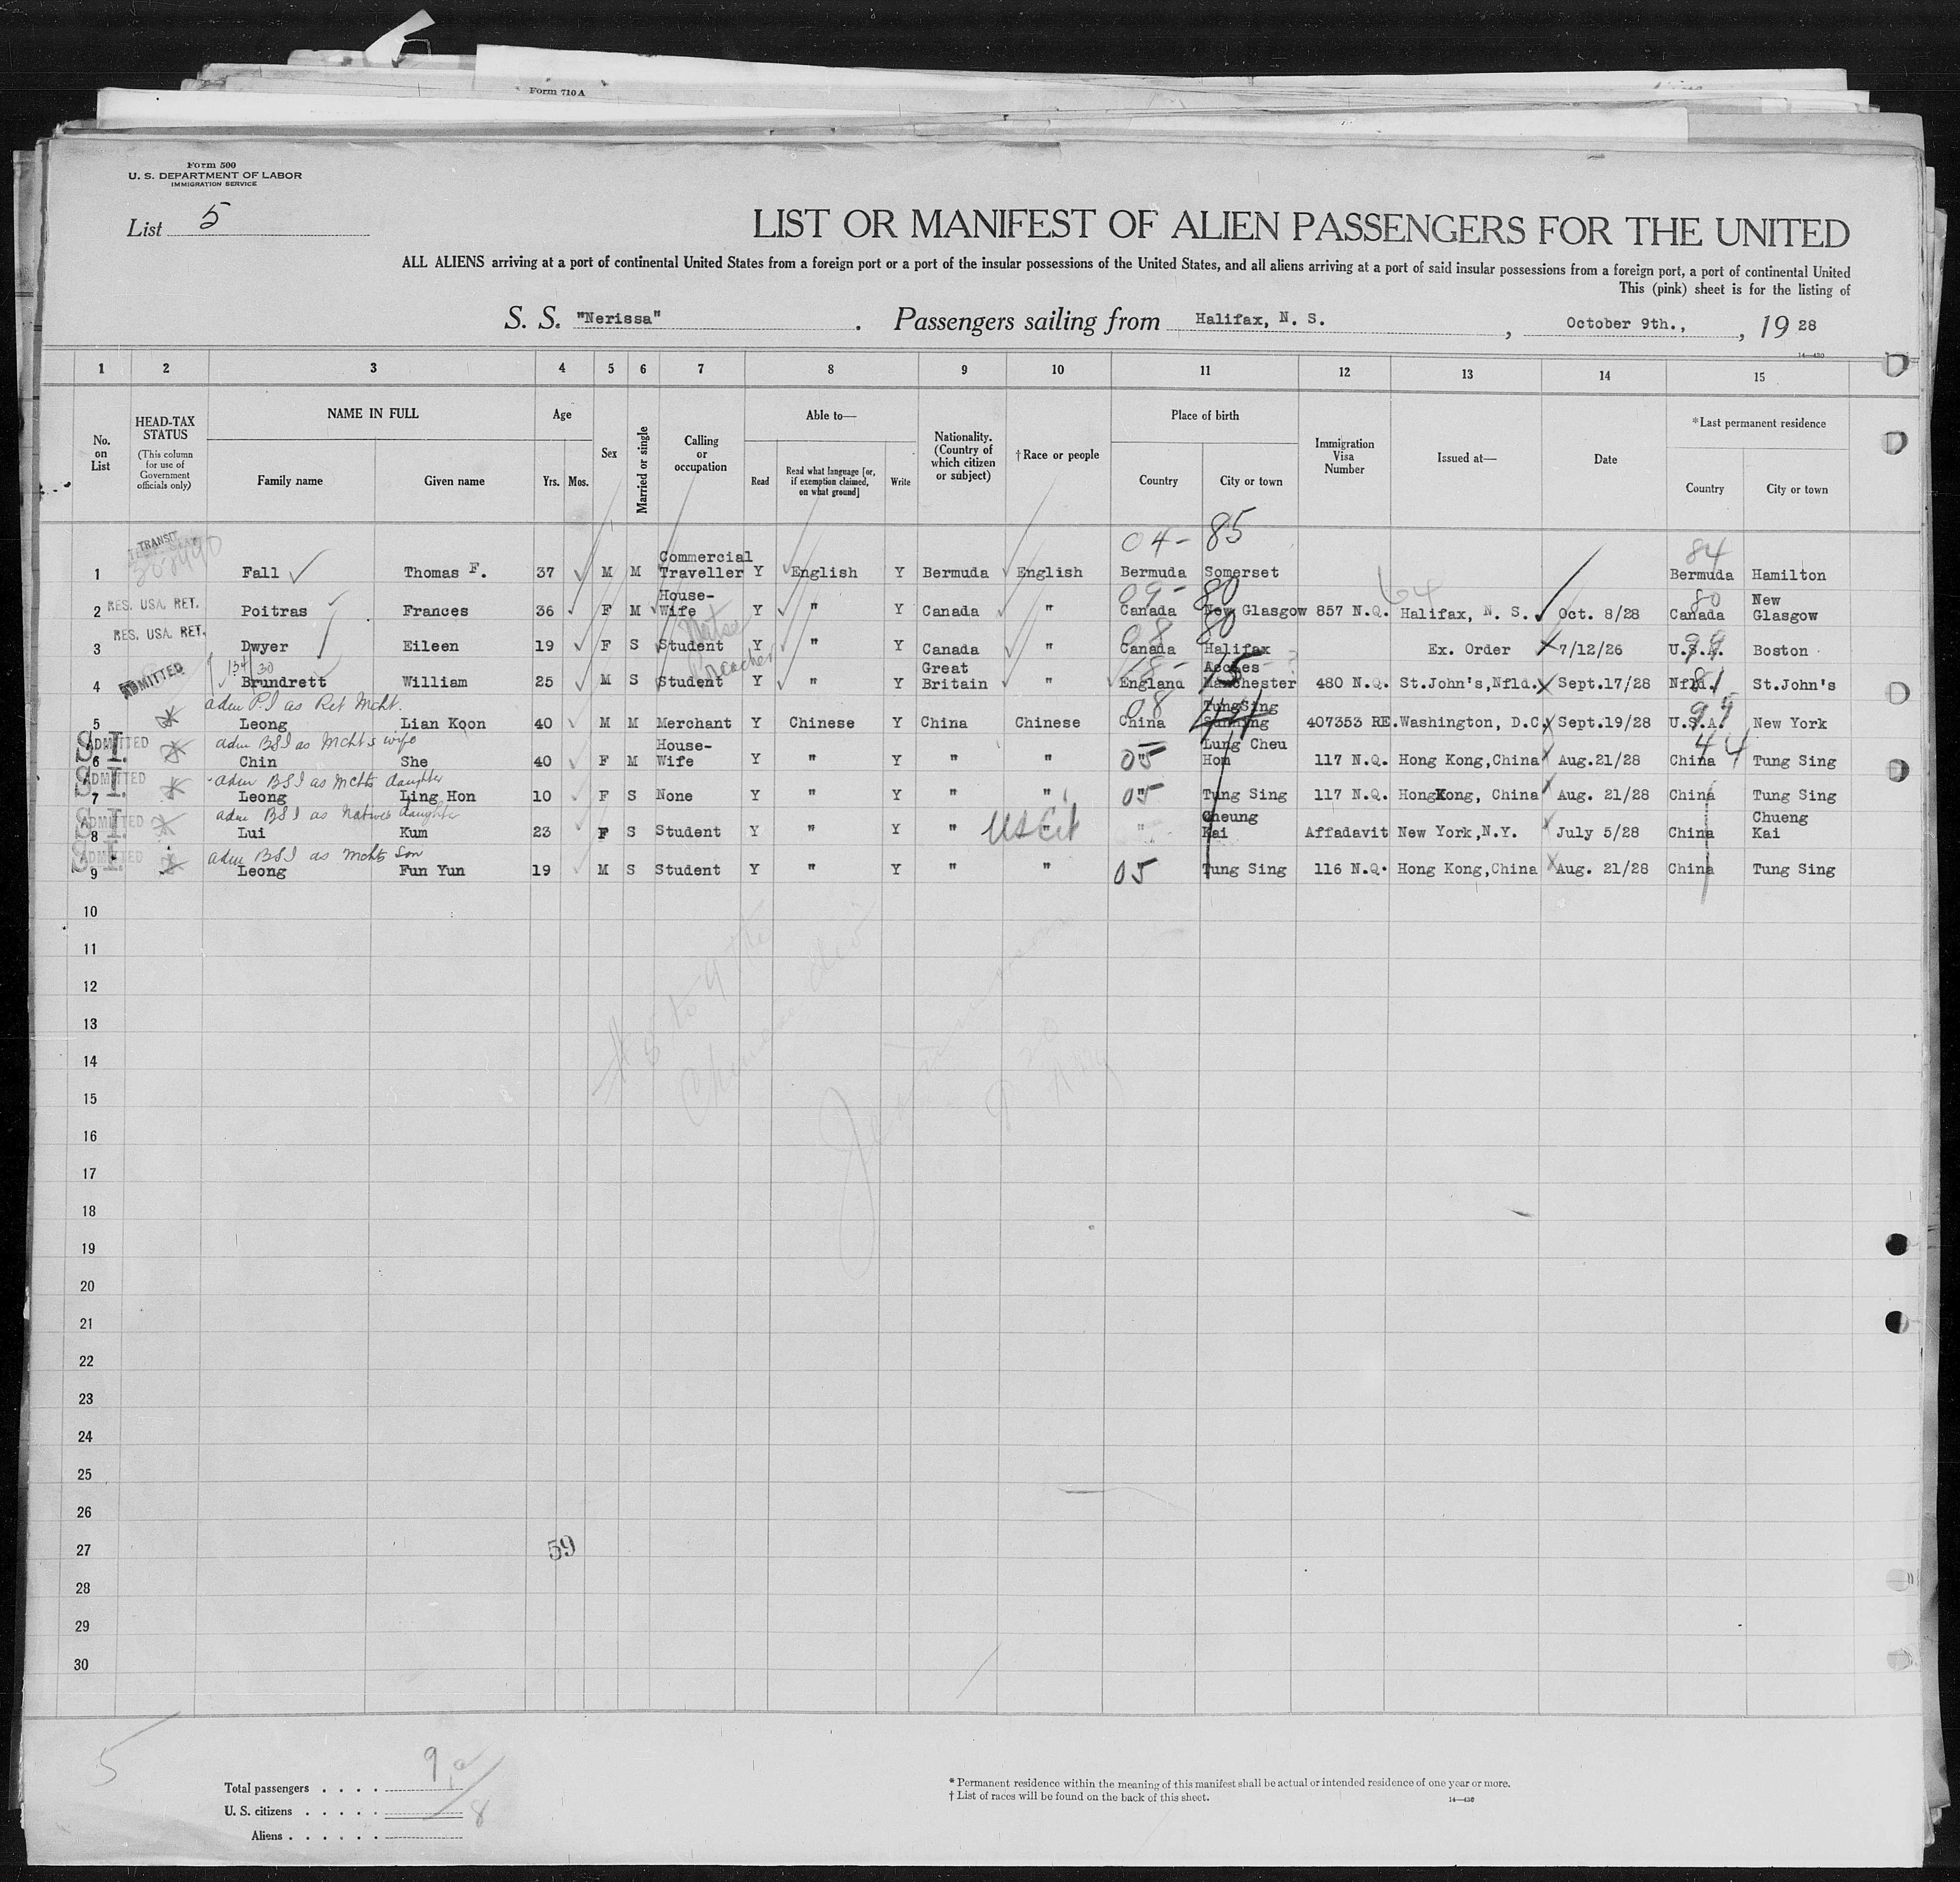 Form 710A
Form 500
U. S. DEPARTMENT OF LABOR
IMMIGRATION SERVICE
List 5
LIST OR MANIFEST OF ALIEN PASSENGERS FOR THE UNITED
ALL ALIENS arriving at a port of continental United States from a foreign port or a port of the insular possessions of the United States, and all aliens arriving at a port of said insular possessions from a foreign port, a port of continental United
This (pink) sheet is for the listing of
S. S. "Nerissa" . Passengers sailing from Halifax, N. S. , October 9th., , 19 28
14—430
1 2 3 4 5 6 7 8 9 10 11 12 13 14 15
No. on List
HEAD-TAX STATUS
(This column for use of Government officials only)
NAME IN FULL
Family name Given name
Age
Yrs. Mos.
Sex
Married or single
Calling or occupation
Able to—
Read
Read what language [or, if exemption claimed, on what ground]
Write
Nationality. (Country of which citizen or subject)
† Race or people
Place of birth
Country City or town
Immigration Visa Number
Issued at—
Date
* Last permanent residence
Country City or town
TRANSIT
04- 85 84
1 Fall Thomas F. 37 M M Commercial Traveller Y English Y Bermuda English Bermuda Somerset Bermuda Hamilton
09- 80 64 80
2 RES. USA. RET. Poitras Frances 36 F M House-Wife Y " Y Canada " Canada New Glasgow 857 N.Q. Halifax, N. S. Oct. 8/28 Canada New Glasgow
08 80 99
3 RES. USA. RET. Dwyer Eileen 19 F S Student Y " Y Canada " Canada Halifax Ex. Order 7/12/26 U.S.A. Boston
134/30 18- 15 81
4 ADMITTED Brundrett William 25 M S Student preacher Y " Y Great Britain " England Manchester 480 N.Q. St.John's,Nfld. Sept.17/28 Nfld. St.John's
adm P.I as Ret Mcht.
08 99
5 Leong Lian Koon 40 M M Merchant Y Chinese Y China Chinese China Tung Sing Sunning 407353 RE. Washington, D.C. Sept.19/28 U.S.A. New York
adm BSI as Mcht's wife
S.I. ADMITTED
05 44
6 Chin She 40 F M House-Wife Y " Y " " " Lung Cheu Hom 117 N.Q. Hong Kong,China Aug.21/28 China Tung Sing
adm BSI as Mchts daughter
S.I. ADMITTED
05
7 Leong Ling Hon 10 F S None Y " Y " " " Tung Sing 117 N.Q. HongKong, China Aug. 21/28 China Tung Sing
adm BSI as Natives daughter
S.I. ADMITTED
8 Lui Kum 23 F S Student Y " Y " US Cit " " Cheung Kai Affadavit New York,N.Y. July 5/28 China Chueng Kai
adm BSI as Mchts Son
S.I. ADMITTED
9 Leong Fun Yun 19 M S Student Y " Y " " 05 Tung Sing 116 N.Q. Hong Kong,China Aug. 21/28 China Tung Sing
10
11
12
13
14
15
16
17
18
19
20
21
22
23
24
25
26
27
59
28
29
30
5
Total passengers . . . . 9
U. S. citizens . . . . . 8
Aliens . . . . . .
* Permanent residence within the meaning of this manifest shall be actual or intended residence of one year or more.
† List of races will be found on the back of this sheet.
14—430